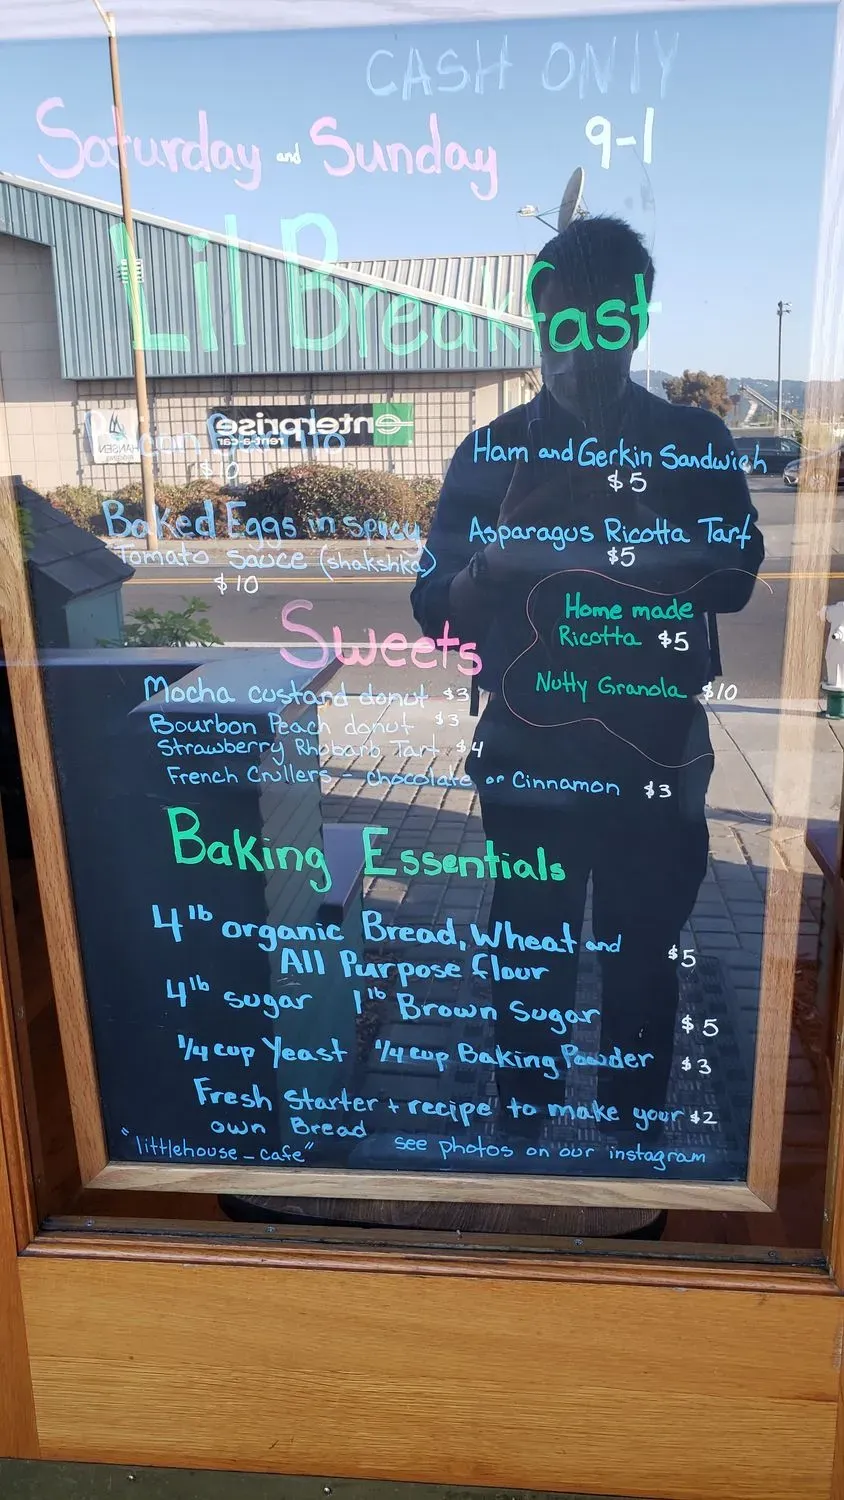 CASH ONLY
Saturday and Sunday 9-1
Lil Breakfast
enterprise
rent-a-car
HANSEN
RIGGING
$10
Ham and Gerkin Sandwich
$5
Baked Eggs in spicy
Tomato Sauce (shakshka)
$10
Asparagus Ricotta Tart
$5
Home made
Ricotta $5
Nutty Granola $10
Sweets
Mocha custard donut $3
Bourbon Peach donut $3
Strawberry Rhubarb Tart $4
French Crullers - chocolate or Cinnamon $3
Baking Essentials
4lb organic Bread, Wheat and
All Purpose flour $5
4lb sugar 1lb Brown Sugar $5
1/4 cup Yeast 1/4 cup Baking Powder $3
Fresh starter + recipe to make your $2
own Bread
"littlehouse_cafe" see photos on our instagram